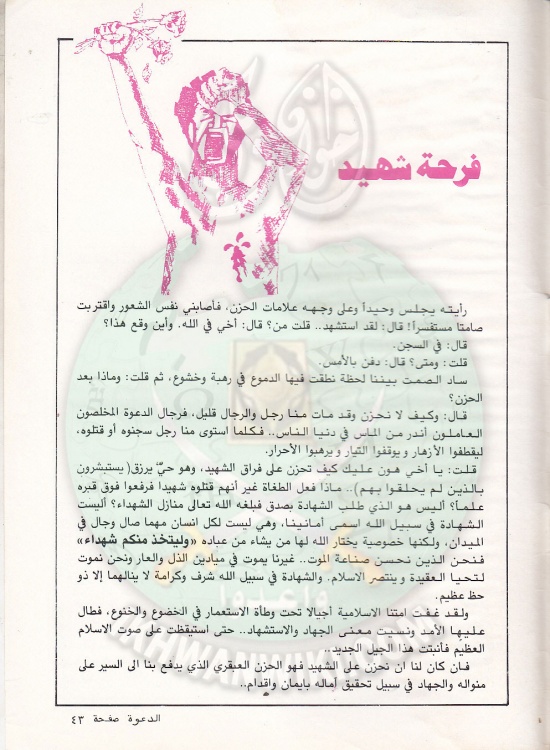 فرحة شهيد
رأيته يجلس وحيداً وعلى وجهه علامات الحزن، فأصابني نفس الشعور واقتربت
صامتا مستفسراً! قال: لقد استشهد.. قلت من؟ قال: أخي في الله. وأين وقع هذا؟
قال: في السجن.
قلت: ومتى؟ قال: دفن بالأمس.
ساد الصمت بيننا لحظة نطقت فيها الدموع في رهبة وخشوع، ثم قلت: وماذا بعد
الحزن؟
قال: وكيف لا نحزن وقد مات منا رجل والرجال قليل، فرجال الدعوة المخلصون
العاملون أندر من الماس في دنيا الناس.. فكلما أستوى منا رجل سجنوه أو قتلوه،
ليقطفوا الأزهار و يوقفوا التيار و يرهبوا الأحرار.
قلت: يا أخي هون عليك كيف تحزن على فراق الشهيد، وهو حيٌّ يرزق( يستبشرون
بالذين لم يحلقوا بهم).. ماذا فعل الطغاة غير أنهم قتلوه شهيدا فرفعوا فوق قبره
علماً؟ أليس هو الذي طلب الشهادة بصدق فبلغه الله تعالى منازل الشهداء؟ أليست
الشهادة في سبيل الله اسمى أمانينا، وهي ليست لكل انسان مهما صال وجال في
الميدان، ولكنها خصوصية يختار الله لها من يشاء من عباده «وليتخذ منكم شهداء»
فنحن الذين نحسن صناعة الموت.. غيرنا يموت في ميادين الذل والعار ونحن نموت
لتحيا العقيدة و ينتصر الاسلام. والشهادة في سبيل الله شرف وكرامة لا ينالهما إلا ذو
حظ عظيم.
ولقد غفت امتنا الاسلامية أجيالا تحت وطأة الاستعمار في الخضوع والخنوع، فطال
عليها الأمد ونسيت معنى الجهاد والاستشهاد.. حتى استيقظت على صوت الاسلام
العظيم فأنبتت هذا الجيل الجديد..
فان كان لنا ان نحزن على الشهيد فهو الحزن العبقري الذي يدفع بنا الى السير على
منواله والجهاد في سبيل تحقيق أماله بايمان واقدام..
الدعوة صفحة ٤٣